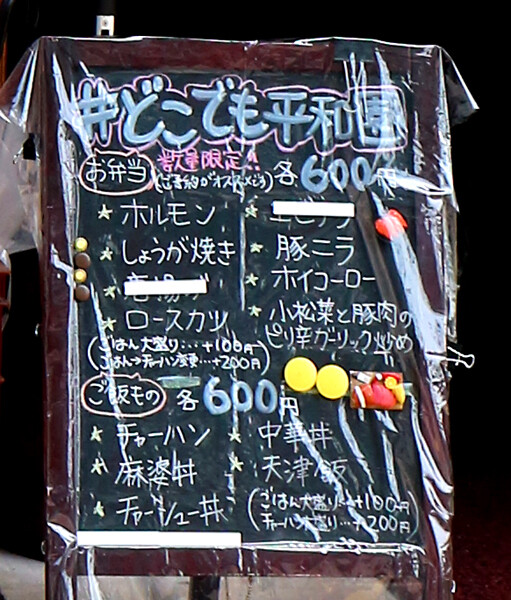 #どこでも平和園
お弁当 数量限定!! (ご予約がオススメです) 各600円
★ホルモン
★しょうが焼き
★ロースカツ
(ごはん大盛り…+100円
ごはん→チャーハン変更…+200円)
★
★豚ニラ
★ホイコーロー
★小松菜と豚肉の
ピリ辛ガーリック炒め
ご飯もの 各600円
★チャーハン
★麻婆丼
★チャーシュー丼
★中華丼
★天津飯
(ごはん大盛り…+100円
チャーハン大盛り…+200円)